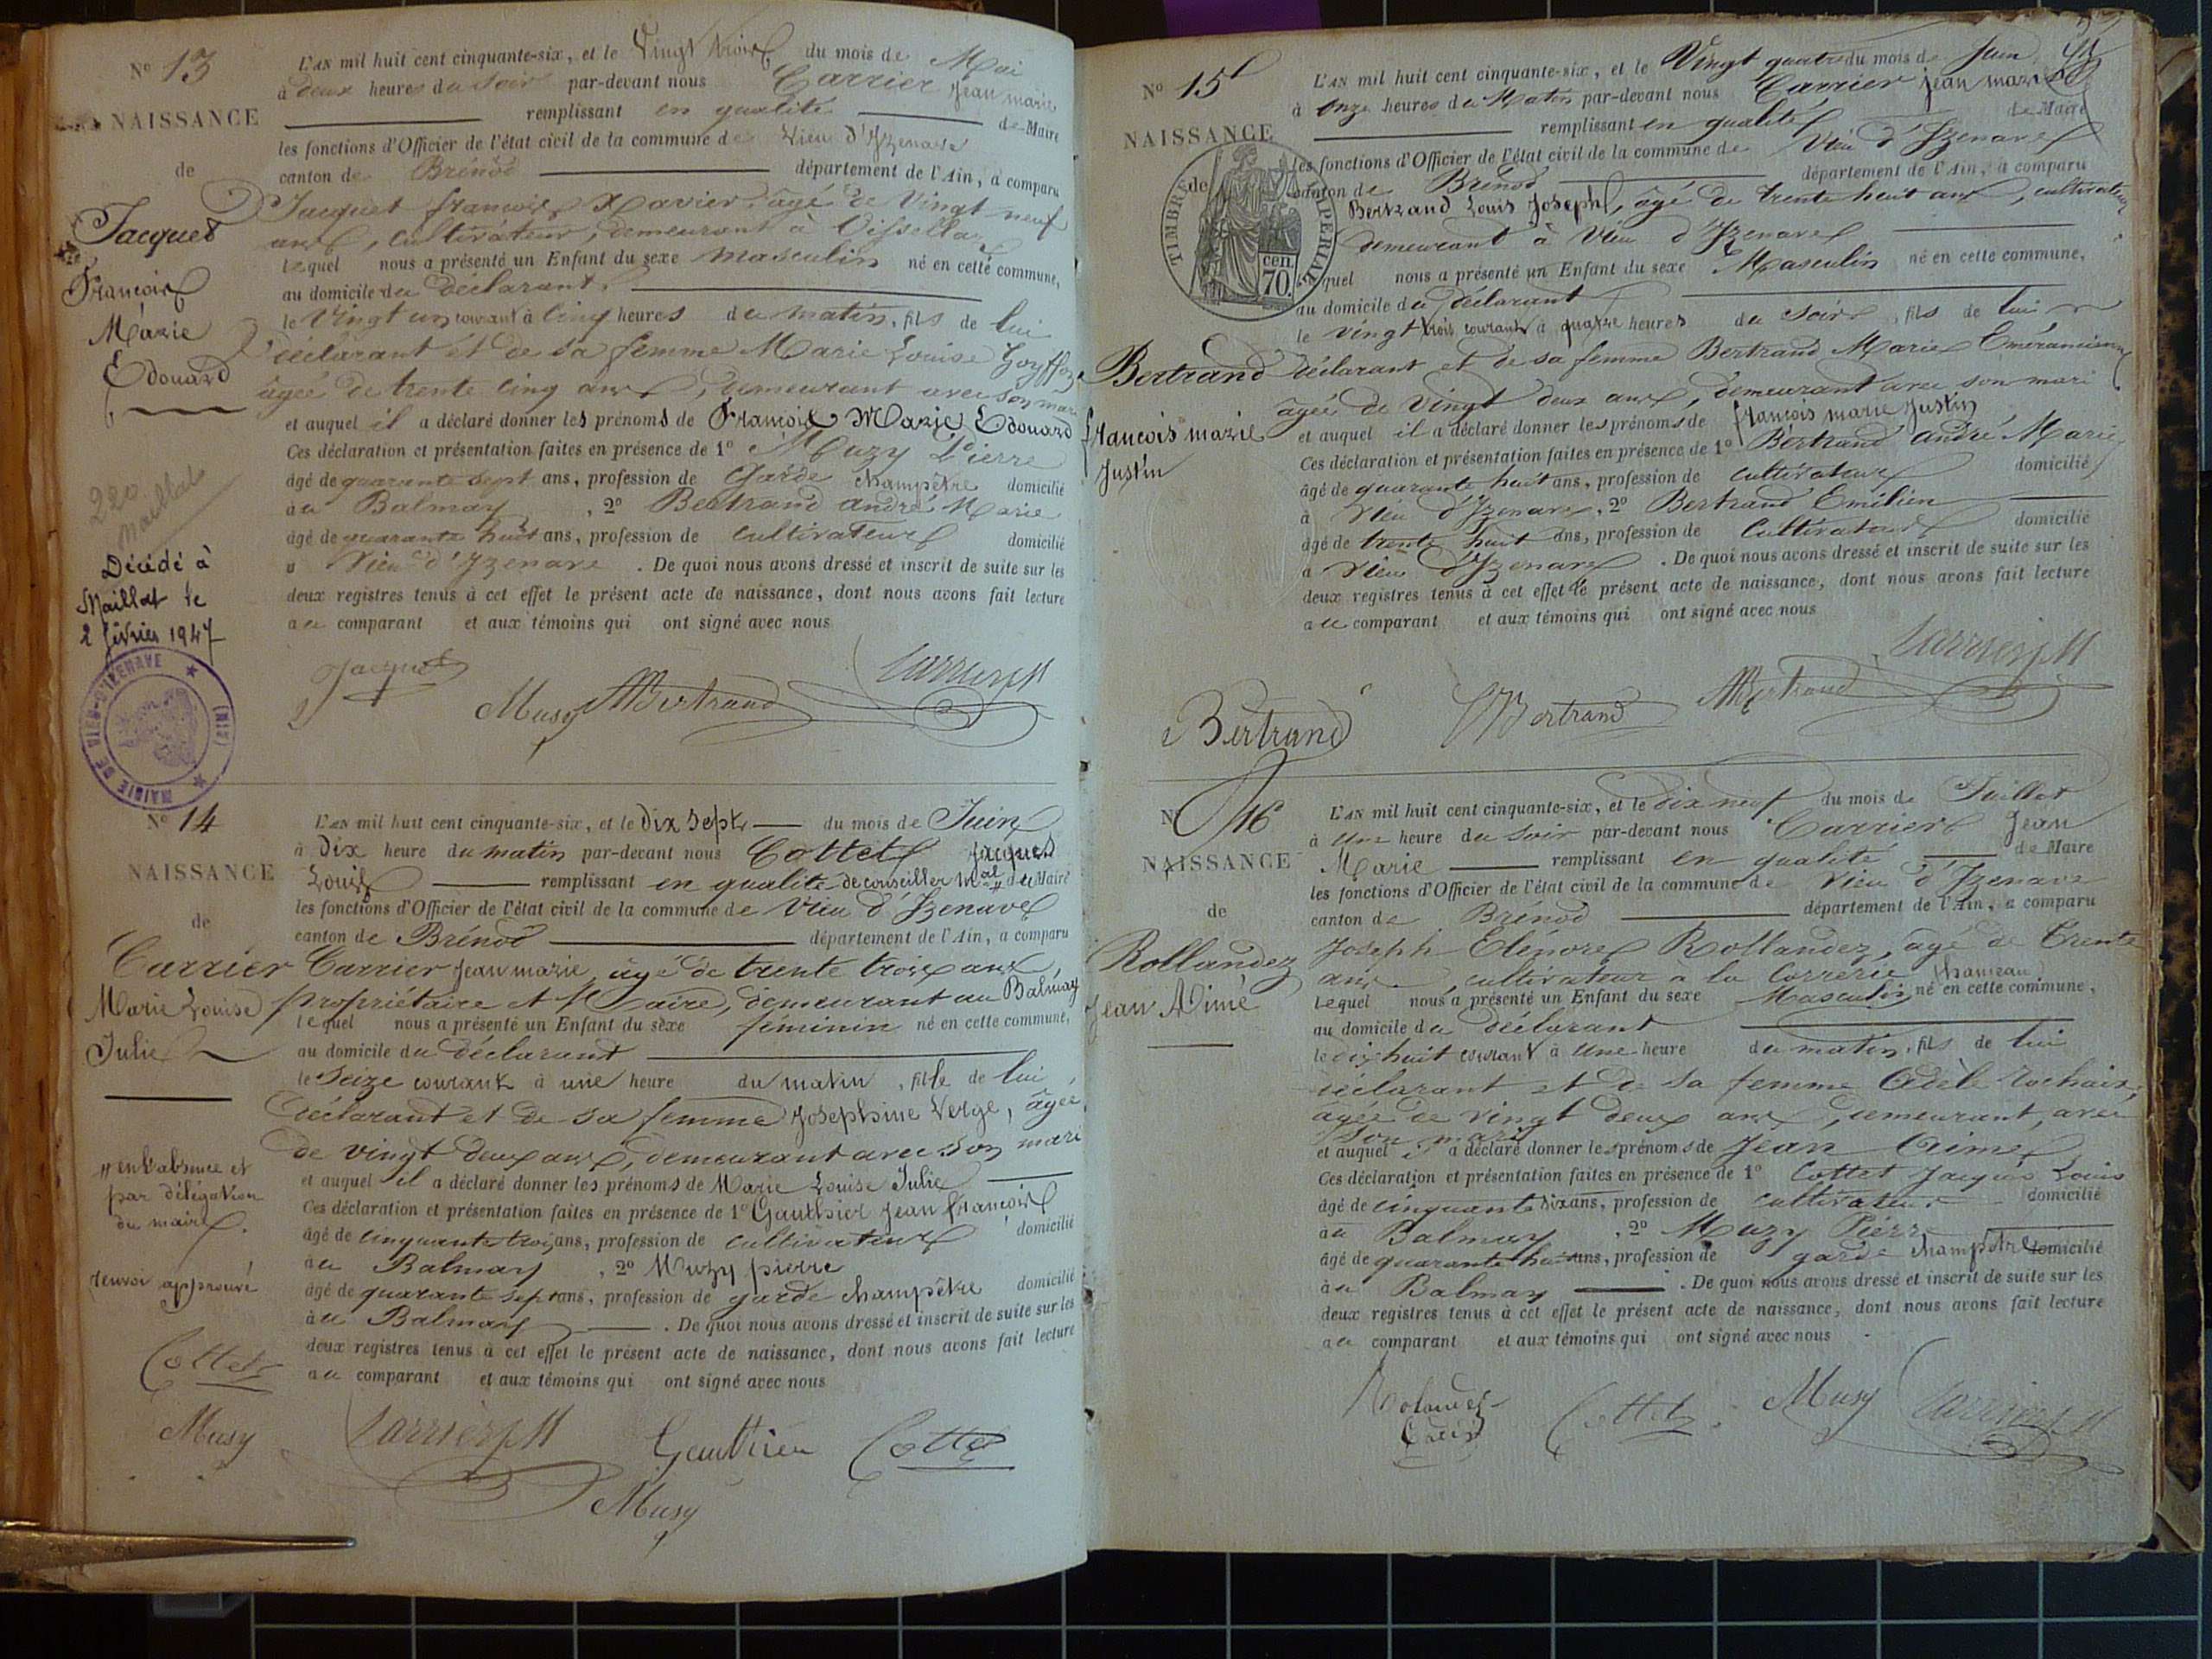 N° 13
NAISSANCE
de
Jacquet
François
Marie
Edouard
220
Maillat
Décédé à
Maillat le
2 février 1947
MAIRIE DE VIEU-D'IZENAVE (AIN)
L'AN mil huit cent cinquante-six, et le Vingt trois du mois de Mai
à deux heures du Soir par-devant nous Carrier Jean marie
remplissant en qualité de Maire
les fonctions d'Officier de l'état civil de la commune de Vieu d'Izenave
canton de Brénod département de l'Ain, a comparu
Jacquet françois Xavier, âgé de Vingt neuf
ans, cultivateur, demeurant à
lequel nous a présenté un Enfant du sexe masculin né en cette commune,
au domicile du déclarant,
le Vingt un courant à Cinq heures du matin, fils de lui
déclarant et de sa femme Marie Louise Goyffon
âgée de trente cinq ans, demeurant avec son mari
et auquel il a déclaré donner les prénoms de François Marie Edouard
Ces déclaration et présentation faites en présence de 1° Muzy Pierre
âgé de quarante sept ans, profession de Garde champêtre domicilié
au Balmay, 2° Bertrand André Marie
âgé de quarante huit ans, profession de cultivateur domicilié
à Vieu d'Izenave. De quoi nous avons dressé et inscrit de suite sur les
deux registres tenus à cet effet le présent acte de naissance, dont nous avons fait lecture
au comparant et aux témoins qui ont signé avec nous
Jacquet
Musy Bertrand Carrier JM
N° 14
NAISSANCE
de
Carrier
Marie Louise
Julie
en l'absence et
par délégation
du maire.
renvoi approuvé
Cottet
Musy
L'AN mil huit cent cinquante-six, et le dix sept du mois de Juin
à Dix heure du matin par-devant nous Cottet Jacques
Louis remplissant en qualité de conseiller Mal du Maire
les fonctions d'Officier de l'état civil de la commune de Vieu d'Izenave
canton de Brénod département de l'Ain, a comparu
Carrier Jean marie, âgé de trente trois ans
propriétaire et Maire, demeurant au Balmay
lequel nous a présenté un Enfant du sexe féminin né en cette commune,
au domicile du déclarant
le Seize courant à une heure du matin, fille de lui,
déclarant et de sa femme Josephine Verge, âgée
de vingt deux ans, demeurant avec son mari
et auquel il a déclaré donner les prénoms de Marie Louise Julie
Ces déclaration et présentation faites en présence de 1° Gauthier Jean françois
âgé de cinquante trois ans, profession de cultivateur domicilié
au Balmay, 2° Muzy pierre
âgé de quarante sept ans, profession de garde champêtre domicilié
au Balmay. De quoi nous avons dressé et inscrit de suite sur les
deux registres tenus à cet effet le présent acte de naissance, dont nous avons fait lecture
au comparant et aux témoins qui ont signé avec nous
Carrier JM Gauthier Cottet
Musy
N° 15
NAISSANCE
de
TIMBRE IMPERIAL
70 cen.
Bertrand
françois marie
Justin
L'AN mil huit cent cinquante-six, et le Vingt quatre du mois de Juin
à Onze heures du Matin par-devant nous Carrier Jean marie
remplissant en qualité de Maire
les fonctions d'Officier de l'état civil de la commune de Vieu d'Izenave
canton de Brénod département de l'Ain, a comparu
Bertrand Louis Joseph, âgé de trente huit ans, cultivateur
demeurant à Vieu d'Izenave
lequel nous a présenté un Enfant du sexe Masculin né en cette commune,
au domicile du déclarant
le vingt trois courant à quatre heures du Soir, fils de lui
déclarant et de sa femme Bertrand Marie
âgée de Vingt deux ans, demeurant avec son mari
et auquel il a déclaré donner les prénoms de françois marie Justin
Ces déclaration et présentation faites en présence de 1° Bertrand André Marie
âgé de quarante huit ans, profession de cultivateur domicilié
à Vieu d'Izenave, 2° Bertrand Emilien
âgé de trente huit ans, profession de Cultivateur domicilié
à Vieu d'Izenave. De quoi nous avons dressé et inscrit de suite sur les
deux registres tenus à cet effet le présent acte de naissance, dont nous avons fait lecture
au comparant et aux témoins qui ont signé avec nous
Carrier JM
Bertrand Bertrand Bertrand
N° 16
NAISSANCE
de
Rollandez
Jean Aimé
L'AN mil huit cent cinquante-six, et le dix neuf du mois de Juillet
à Une heure du Soir par-devant nous Carrier Jean
Marie remplissant en qualité de Maire
les fonctions d'Officier de l'état civil de la commune de Vieu d'Izenave
canton de Brénod département de l'Ain, a comparu
Joseph Elénore Rollandez, âgé de trente
ans, cultivateur a la Correrie hameau
lequel nous a présenté un Enfant du sexe Masculin né en cette commune,
au domicile du déclarant
le dix huit courant à Une heure du matin, fils de lui
déclarant et de sa femme Adèle Rochaix,
âgée de vingt deux ans, demeurant, avec
son mari
et auquel il a déclaré donner les prénoms de Jean Aimé
Ces déclaration et présentation faites en présence de 1° Cottet Jacques Louis
âgé de cinquante dix ans, profession de cultivateur domicilié
au Balmay, 2° Muzy Pierre
âgé de quarante huit ans, profession de garde champêtre domicilié
au Balmay. De quoi nous avons dressé et inscrit de suite sur les
deux registres tenus à cet effet le présent acte de naissance, dont nous avons fait lecture
au comparant et aux témoins qui ont signé avec nous
Rolandez Cottet Musy Carrier JM